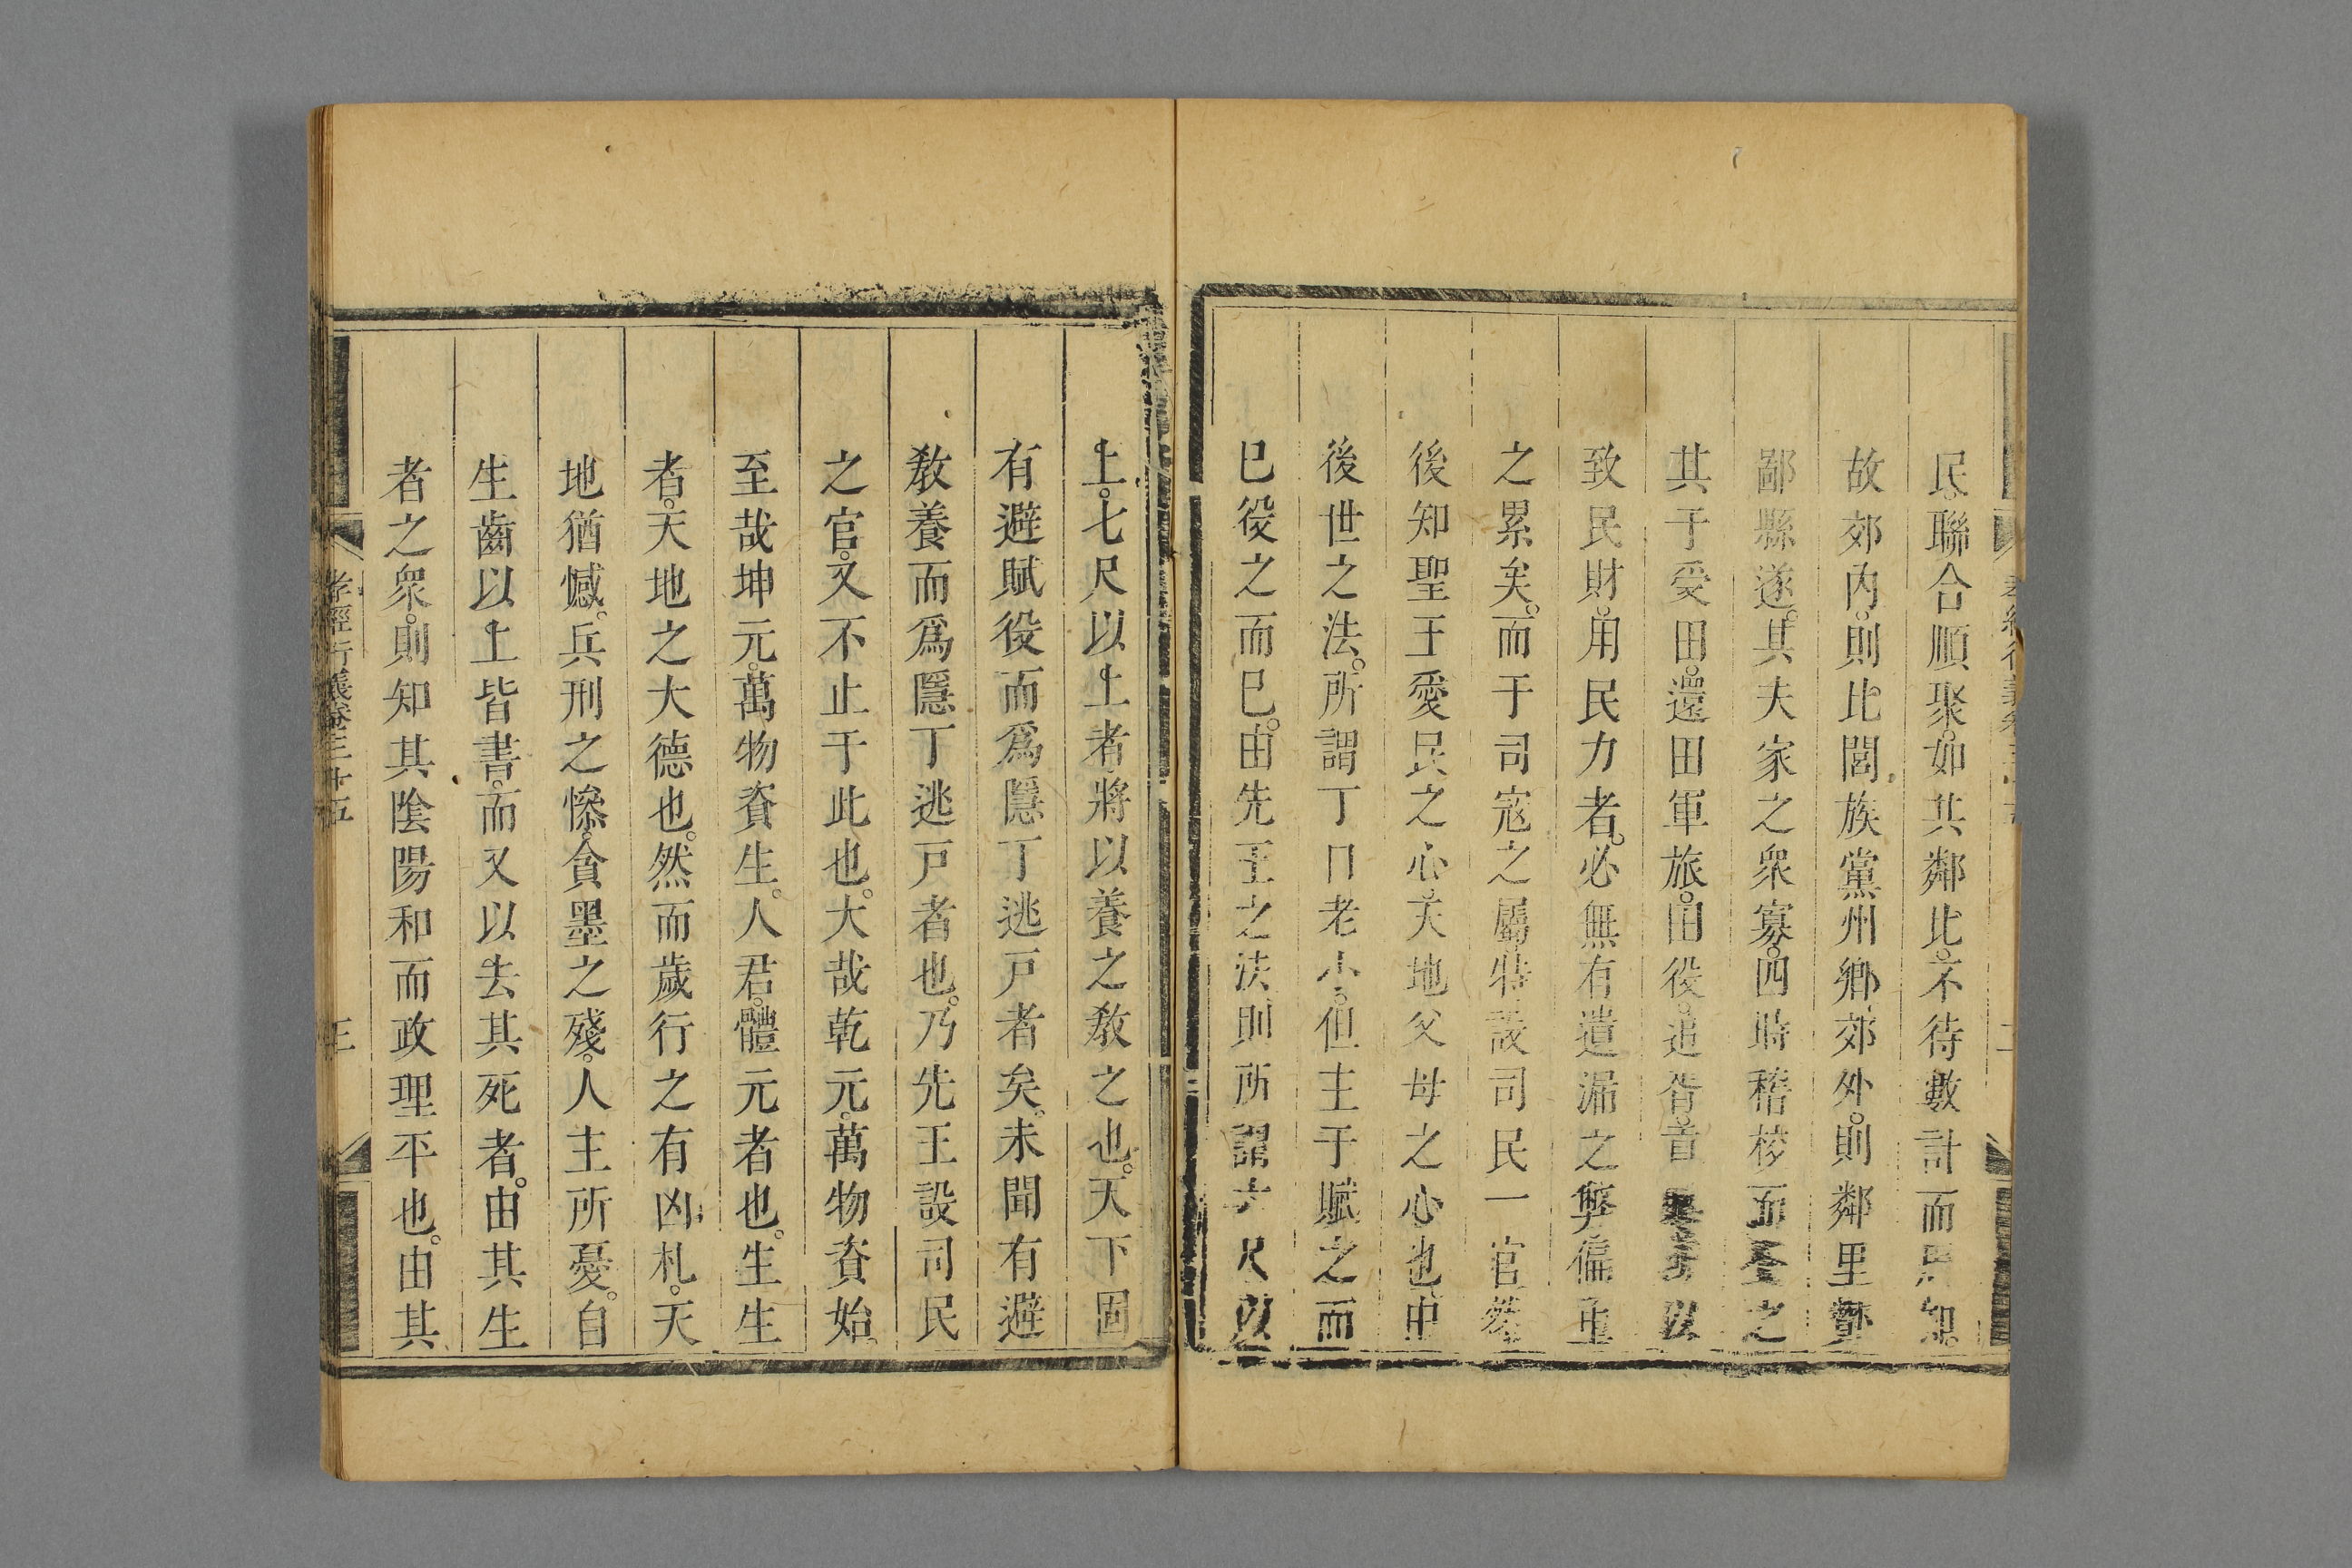 民。聯合順聚。如共鄰比。不待數計而知。
故郊内。則比閭族黨州鄉。郊外。則鄰里酇
鄙縣遂。其夫家之衆寡。四時稽校而登之
其于受田。還田軍旅。田役。追胥。音以
致民財。用民力者。必無有遺漏之弊偏重
之累矣。而于司寇之屬特設司民一官。然
後知聖王愛民之心。天地父母之心也。由
後世之法。所謂丁口老小。但主于賦之而
已役之而已。由先王之法則所謂六尺以
上。七尺以上者。將以養之敎之也。天下固
有避賦役而爲隱丁逃戸者矣。未聞有避
敎養而爲隱丁逃戸者也。乃先王設司民
之官。又不止于此也。大哉乾元。萬物資始。
至哉坤元。萬物資生。人君。體元者也。生生
者。天地之大德也。然而歲行之有凶札。天
地猶憾。兵刑之慘。貪墨之殘。人主所憂。自
生齒以上皆書。而又以去其死者。由其生
者之衆。則知其陰陽和而政理平也。由其
孝經衍義卷三十五
三